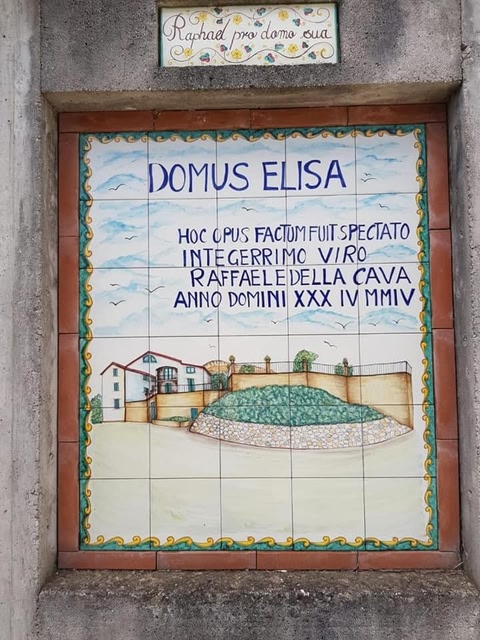 Raphael pro domo sua
DOMUS ELISA
HOC OPUS FACTUM FUIT SPECTATO
INTEGERRIMO VIRO
RAFFAELE DELLA CAVA
ANNO DOMINI XXX IV MMIV